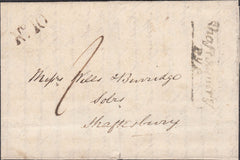 No. 10
2
Messrs Wills & Burridge
Solrs
Shaftesbury
Shaftesbury